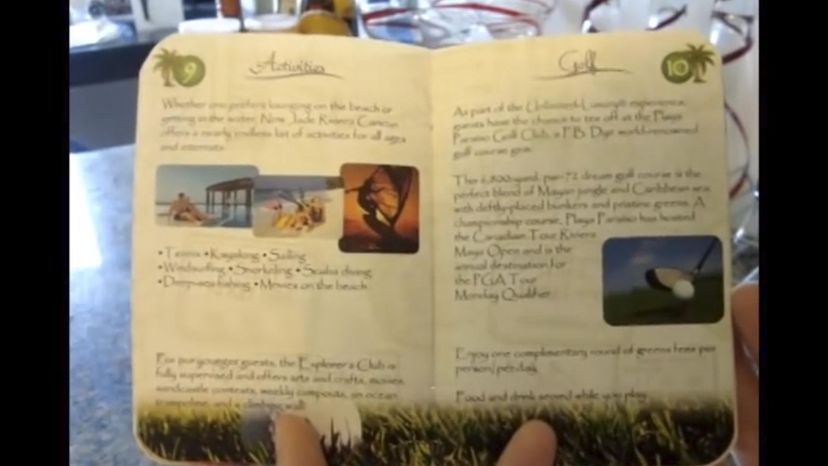 9
Activities
Whether one prefers lounging on the beach or
getting in the water, Now Jade Riviera Cancun
offers a nearly endless list of activities for all ages
and interests.
• Tennis • Kayaking • Sailing
• Windsurfing • Snorkeling • Scuba diving
• Deep-sea fishing • Movies on the beach
For our younger guests, the Explorer's Club is
fully supervised and offers arts and crafts, movies
sandcastle contests, weekly campouts, an ocean
trampoline and a climbing wall
Golf
10
As part of the Unlimited-Luxury® experience,
guests have the chance to tee off at the Playa
Paraiso Golf Club, a P.B. Dye world-renowned
golf course gem.
This 6,800-yard, par-72 dream golf course is the
perfect blend of Mayan jungle and Caribbean sea
with deftly-placed bunkers and pristine greens. A
championship course, Playa Paraiso has hosted
the Canadian Tour Riviera
Maya Open and is the
annual destination for
the PGA Tour
Monday Qualifier.
Enjoy one complimentary round of greens fees per
person/per day.
Food and drink around while you play